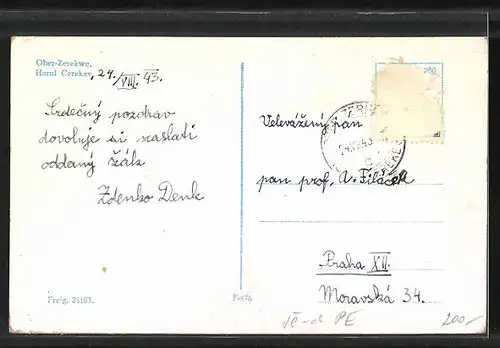 Ober-Zerekwe.
Horní Cerekev, 24./VIII. 43.
Srdečný pozdrav
dovoluje si zaslati
oddaný žák
Zdenko Denk
Freig. 24163.
260
Velevážený pan
pan prof. A. Filáček
Praha XII.
Moravská 34.
200.-